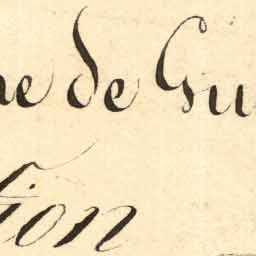 ne de Gu
tion